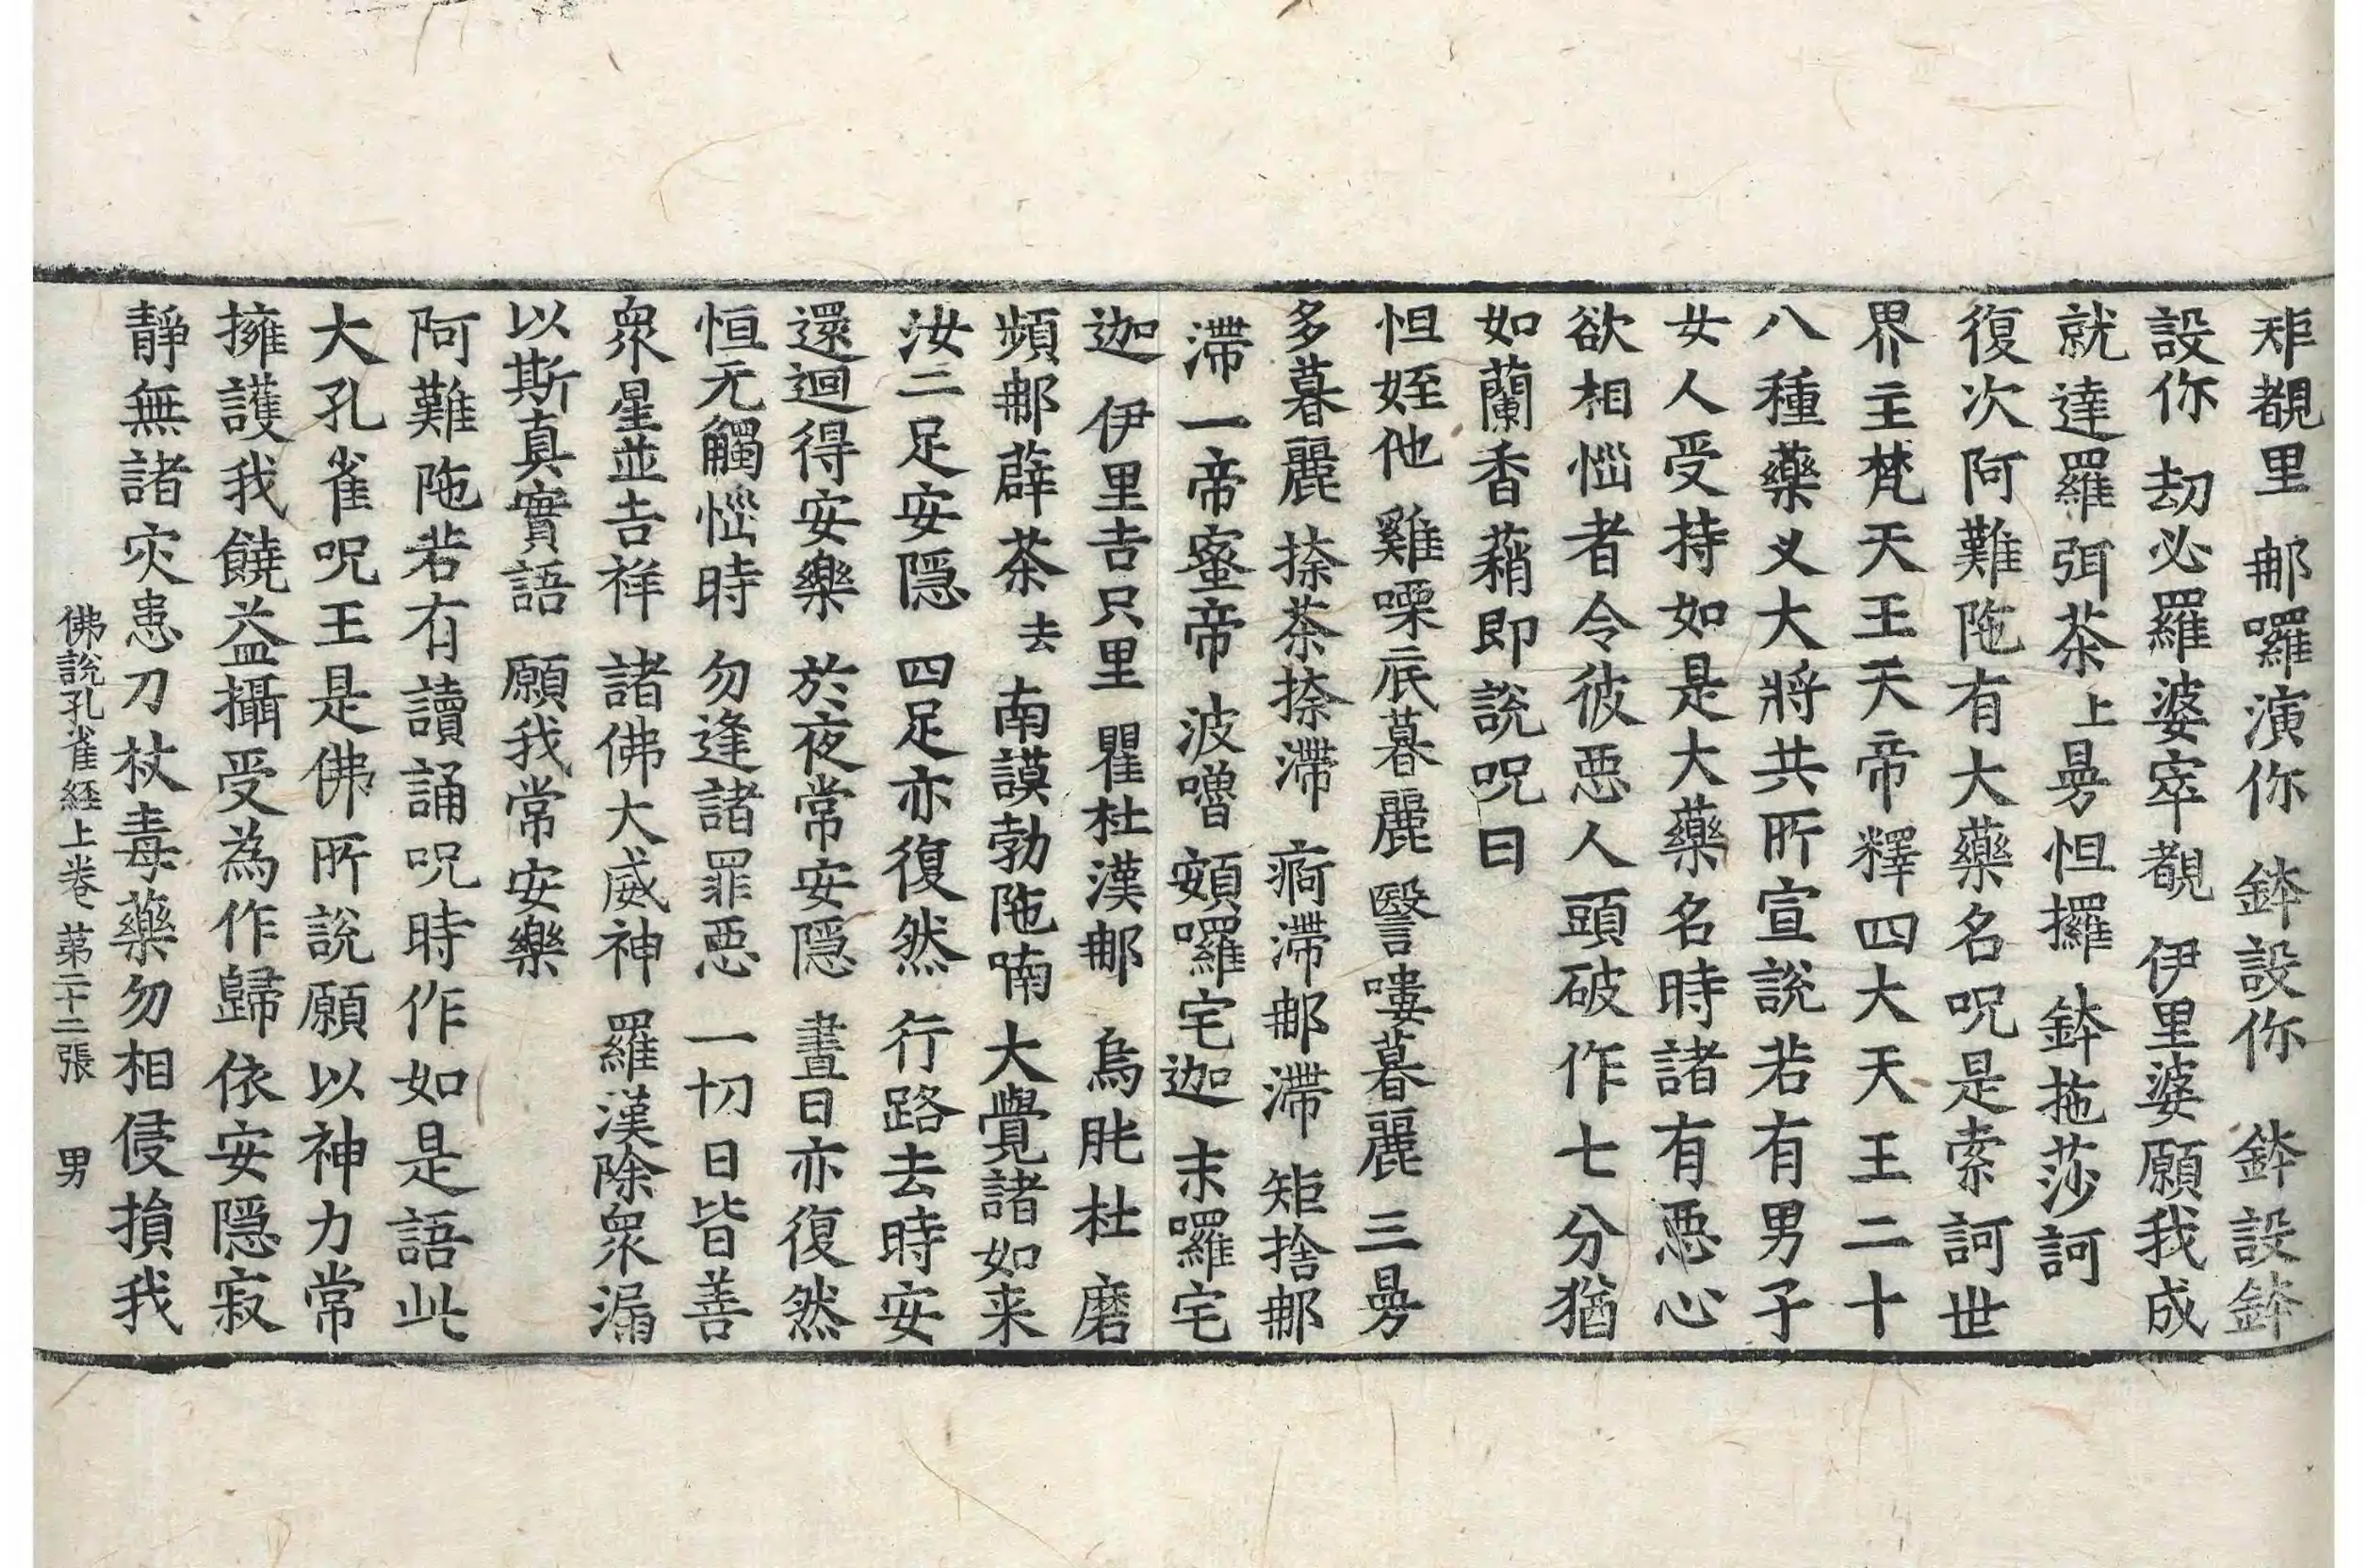 那覩里 郍囉演你 鉢設你 鉢設鉢
設你 劫必羅婆窣覩 伊里婆願我成
就達羅弭荼上曼怛攞 鉢拖莎訶
復次阿難陁有大藥名呪是索訶世
界主梵天王天帝釋四大天王二十
八種藥叉大將共所宣說若有男子
女人受持如是大藥名時諸有惡心
欲相惱者令彼惡人頭破作七分猶
如蘭香䕒即說呪曰
怛姪他 雞㗚底暮麗 䃜嘍暮麗 三曼
多暮麗 捺茶捺滯 痾滯郍滯 矩捨郍
滯 一帝蜜帝 波嚕 頞囉宅迦 末囉宅
迦 伊里吉只里 瞿杜漢郍 烏肶杜 磨
頻郍薜茶去 南謨勃陁喃 大覺諸如来
汝二足安隱 四足亦復然 行路去時安
還迴得安樂 於夜常安隱 晝日亦復然
恒无觸惱時 勿逢諸罪惡 一切日皆善
衆星並吉祥 諸佛大威神 羅漢除衆漏
以斯真實語 願我常安樂
阿難陁若有讀誦呪時作如是語此
大孔雀呪王是佛所說願以神力常
擁護我饒益攝受為作歸依安隱寂
靜無諸灾患刀杖毒藥勿相侵損我
佛說孔雀經上卷 第二十二張 男